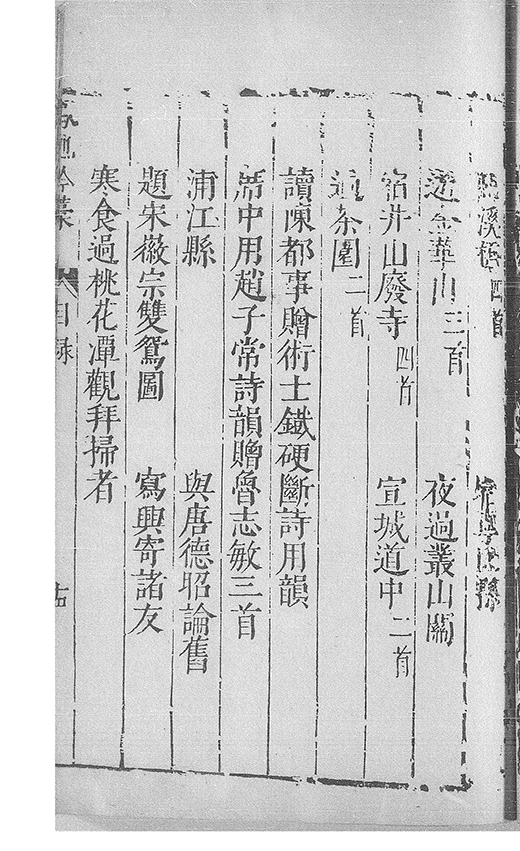 溪 四首
過金華山三首 夜過叢山關
宿井山廢寺四首 宣城道中二首
過茶園二首
讀陳都事贈術士鐵硬斷詩用韻
席中用趙子常詩韻贈魯志敏三首
浦江縣 與唐德昭論舊
題宋徽宗雙鴛圖 寫興寄諸友
寒食過桃花潭觀拜掃者
目録